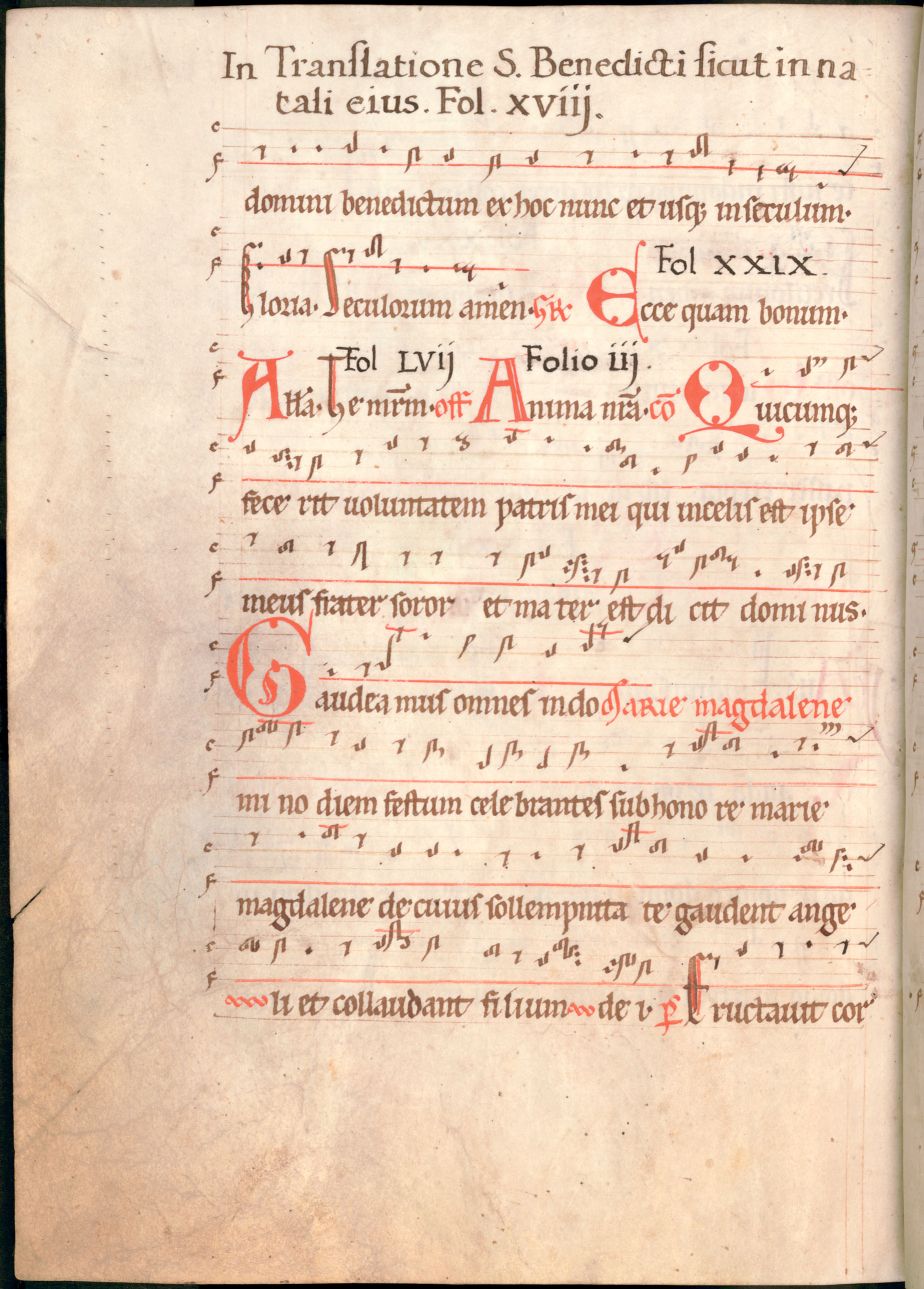 In Tranſlatione S. Benedicti ſicut in na
tali eius. Fol. xviij.
domini benedictum ex hoc nunc et usq; in sẽculum̃.
Gloria. Seculorum am̃en. G̃R Ecce quam bonum. Fol XXIX.
All̃a. Te mr̃m. Fol LVij off̃ Anima nr̃a. Folio iij. co᷃ Quicumq;
fece rit uoluntatem patris mei qui in celis est ipse
meus frater soror et ma ter est di cit domi nus.
Gaudea mus omnes in do Marie magdalene
mi no diem festum cele brantes sub hono re marie
magdalene de cuius sollempnita te gaudent ange
li et collaudant fi lium de i. p̃s Eructauit cor